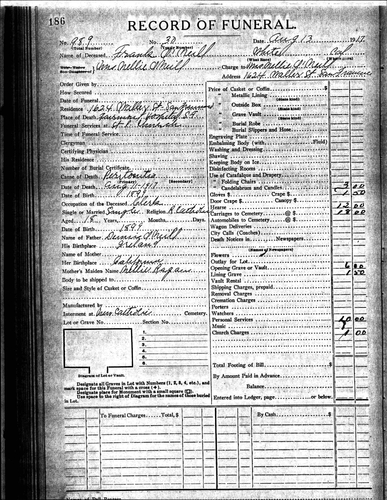 186
RECORD OF FUNERAL.
No. 989 30 Date Aug 13 1917
(Total Number) (Yearly Number)
Name of Deceased Frank O'Neill White Cal
Mrs Nellie O'Neill Charge to Mrs Nellie O'Neill
Address 1624 Waller St San Francisco
Order Given by
How Secured
Date of Funeral
Residence 1624 Waller St San Francisco
Place of Death Fairmont Hospital S.F.
Funeral Services at
Time of Funeral Service
Clergyman
Certifying Physician
His Residence
Number of Burial Certificate
Cause of Death Peritonitis
Date of Death Aug 11-1917
Date of Birth 1899
Occupation of the Deceased Clerk
Single or Married Single Religion R Catholic
Age 18
Date of Birth 1899
Name of Father Dennis O'Neill
His Birthplace Ireland
Name of Mother
Her Birthplace California
Mother's Maiden Name Nellie
Body to be shipped to
Size and Style of Casket or Coffin
Manufactured by
Interment at New Cathedral Cemetery.
Lot or Grave No. Section No.
1
2
3
4
5
6
Diagram of Lot or Vault.
Designate all Graves in Lot with Numbers (1, 2, 3, 4, etc.), and
mark space for this Funeral with a cross (+).
Designate place for Monument with a small square
Use space to the right of Diagram for the names of those buried
in Lot.
Price of Casket or Coffin
Metallic Lining
(State Kind)
Outside Box
(State Kind)
Grave Vault
(State Kind)
Burial Robe
Burial Slippers and Hose
Engraving Plate
Embalming Body (with Fluid)
Washing and Dressing
Shaving
Keeping Body on Ice
Disinfecting Rooms
Use of Catafalque and Drapery
Folding Chairs
Candelabrum and Candles 3 00
Gloves $ Crape $ 1 50
Door Crape $ Canopy $
Hearse 12 00
Carriages to Cemetery @ $ 18 00
Automobiles to Cemetery @ $
Wagon Deliveries
City Calls (Coaches)
Death Notices in Newspapers.
(Names of Newspapers)
Flowers
Outlay for Lot
Opening Grave or Vault 6 00
Lining Grave 1 50
Vault Rental
Shipping Charges, prepaid
Removal Charges
Cremation Charges
Porters
Watchers
Personal Services
Music
Church Charges
Total Footing of Bill $
By Amount Paid in Advance
Balance
Entered into Ledger, page or below.
To Funeral Charges Total, $
By Cash $